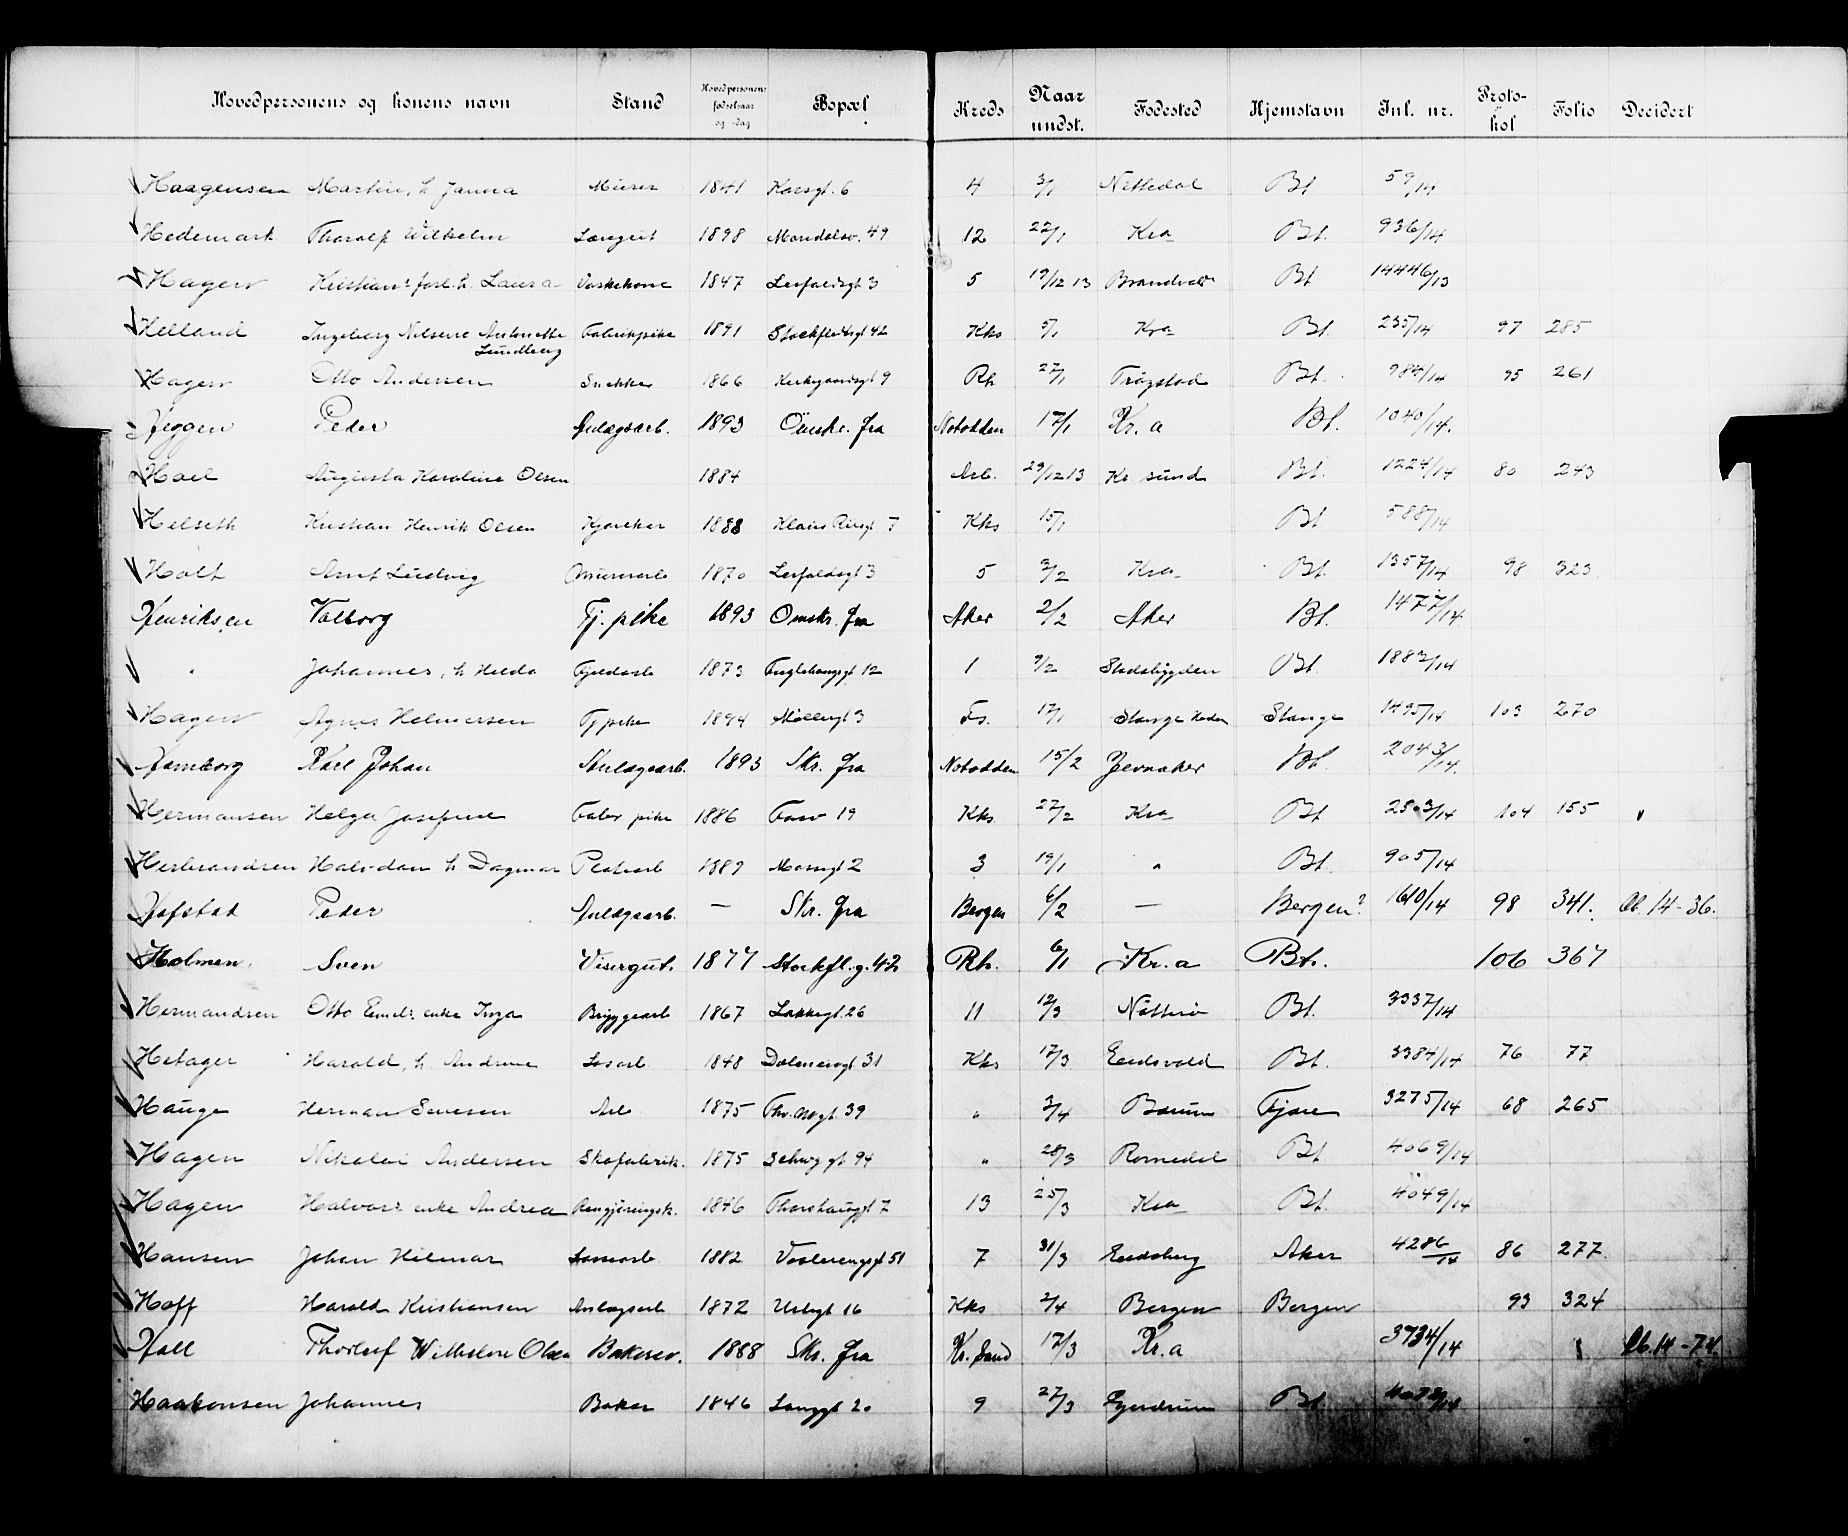 Hovedpersonens og konens navn Stand Hovedpersonens fødselsaar og -dag Bopæl Kreds Naar undst. Fødested Hjemstavn Inl. nr. Protokol Folio Decidert
Haagensen Martin, h Janna Murer 1841 Korsgt. 6 4 3/1 Nittedal Bt 59/14
Hedemark Tharalf Wilhelm Læregut 1898 49 12 22/1 Kra Bt. 936/14
Hagen Kristians forl. h. Laura Vaskekone 1847 Lerfaldsgt 3 5 19/12 13 Brandval Bt 14446/13
Helland Ingeborg Nilsine Antonette Fabrikpike 1891 Stockfledtsgt 42 Kks 5/1 Kra Bt. 235/14 97 285
Lundberg
Hagen Otto Andersen Snekker 1866 Kirkegaardsgt 9 Rh 27/1 Trøgstad Bt. 984/14 95 261
Heggen Peder Anlægsarb. 1893 Ønske. fra Notodden 17/1 Kr. a Bt. 1040/14.
Hoel Augusta Karoline Olsen 1884 Arb. 29/12 13 Kr. sund Bt. 1224/14 80 243
Helseth Kristian Henrik Olsen Kjørekar 1888 Klaus Riisgt 7 Kks 15/1 Bt 588/14
Holt Arnt Ludvig Murerarb 1870 Lerfaldsgt 3 5 3/2 Kra Bt. 1357/14 98 323
Henriksen Valborg Tj. pike 1893 Omskr. fra Aker 2/2 Aker Bt. 1477/14
" Johannes, h Hilda Fjeldarb 1873 Fuglehaugt 12 1 9/2 Stadsbygden Bt. 1883/14
Hagen Agnes Helmersen Tjpike 1894 Møllergt 3 Fs. 17/1 Stange Hedm Stange 1495/14 103 270
Hamborg Karl Johan Anlægsarb. 1893 Skr. fra Notodden 15/2 Jevnaker Bt. 2043/14.
Hermansen Helga Josefine Fabr pike 1886 Fosv 19 Kks 27/2 Kra Bt 2503/14 104 155
Herbrandsen Halvdan h Dagmar Platearb 1889 Mossegt 2 3 19/1 " Bt. 905/14
Hofstad Peder Anlægsarb. — Skr. fra Bergen 6/2 — Bergen? 1610/14 98 341. Cb. 14-36.
Holmen. Sven Visergut. 1877 Stockfl.g. 42 Rh. 6/1 Kr. a Bt. 106 367
Hermandsen Otto Emils enke Inga Bryggearb 1867 Lakkegt. 26 11 12/3 Nøtterø Bt. 3337/14
Hetager Harald, h Andrine Løsarb 1848 Dælenengt 31 Kks 17/3 Eidsvold Bt. 3384/14 76 77
Hauge Herman Seversen Arb 1875 Thv. Meygt. 39 " 3/4 Bærum Fjære 3275/14 68 265
Hagen Nikolai Andersen Skofabrik. 1875 Schwg gt 94 " 28/3 Romedal Bt 4069/14
Hagen Halvors enke Andrea Rengjøringsk. 1846 Thorshauggt 7 13 25/3 Kra Bt. 4049/14
Hansen Johan Hilmar Losearb 1882 Vaalerenggt 51 7 31/3 Eidsberg Aker 4286/14 86 277
Hoff Harald Kristiansen Anlægsarb 1872 Urtegt 16 Kks 2/4 Bergen Bergen 93 324
Hall Thorleif Wilhelm Olsen Bakersv. 1888 Skr. fra Kr. Sund 17/3 Kr. a 3734/14 Cb. 14-74.
Haakonsen Johannes Baker 1846 Langgt 20 9 27/3 Gjerdrum Bt.